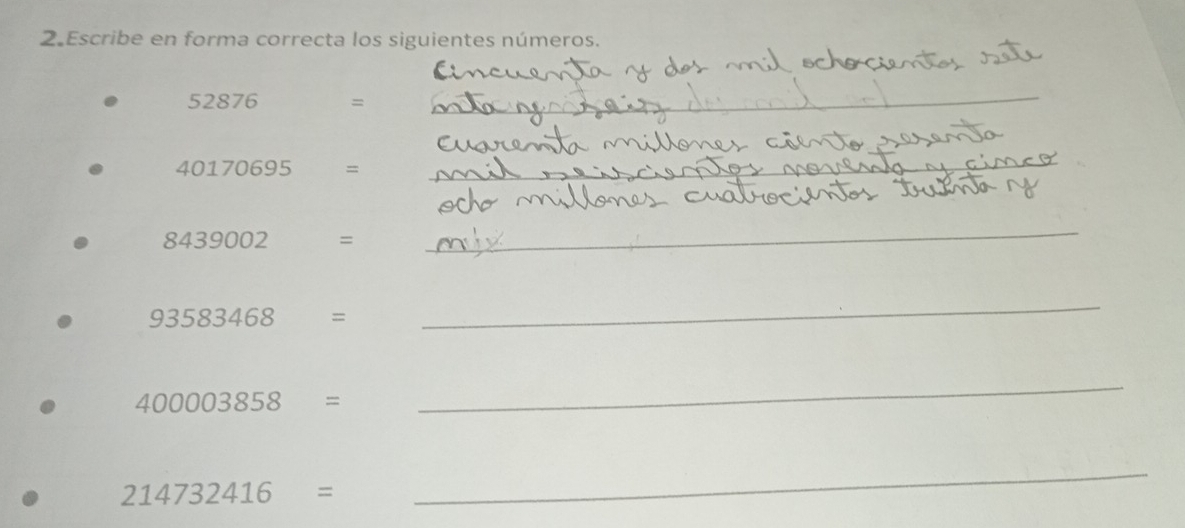 2. Escribe en forma correcta los siguientes números.
cincuenta y dos mil ochocientos sete
52876 = nta y seis
cuarenta millones ciento sesenta
40170695 = mil seiscientos noventa y cinco
ocho millones cuatrocientos treinta y
8439002 =
93583468 =
400003858 =
214732416 =